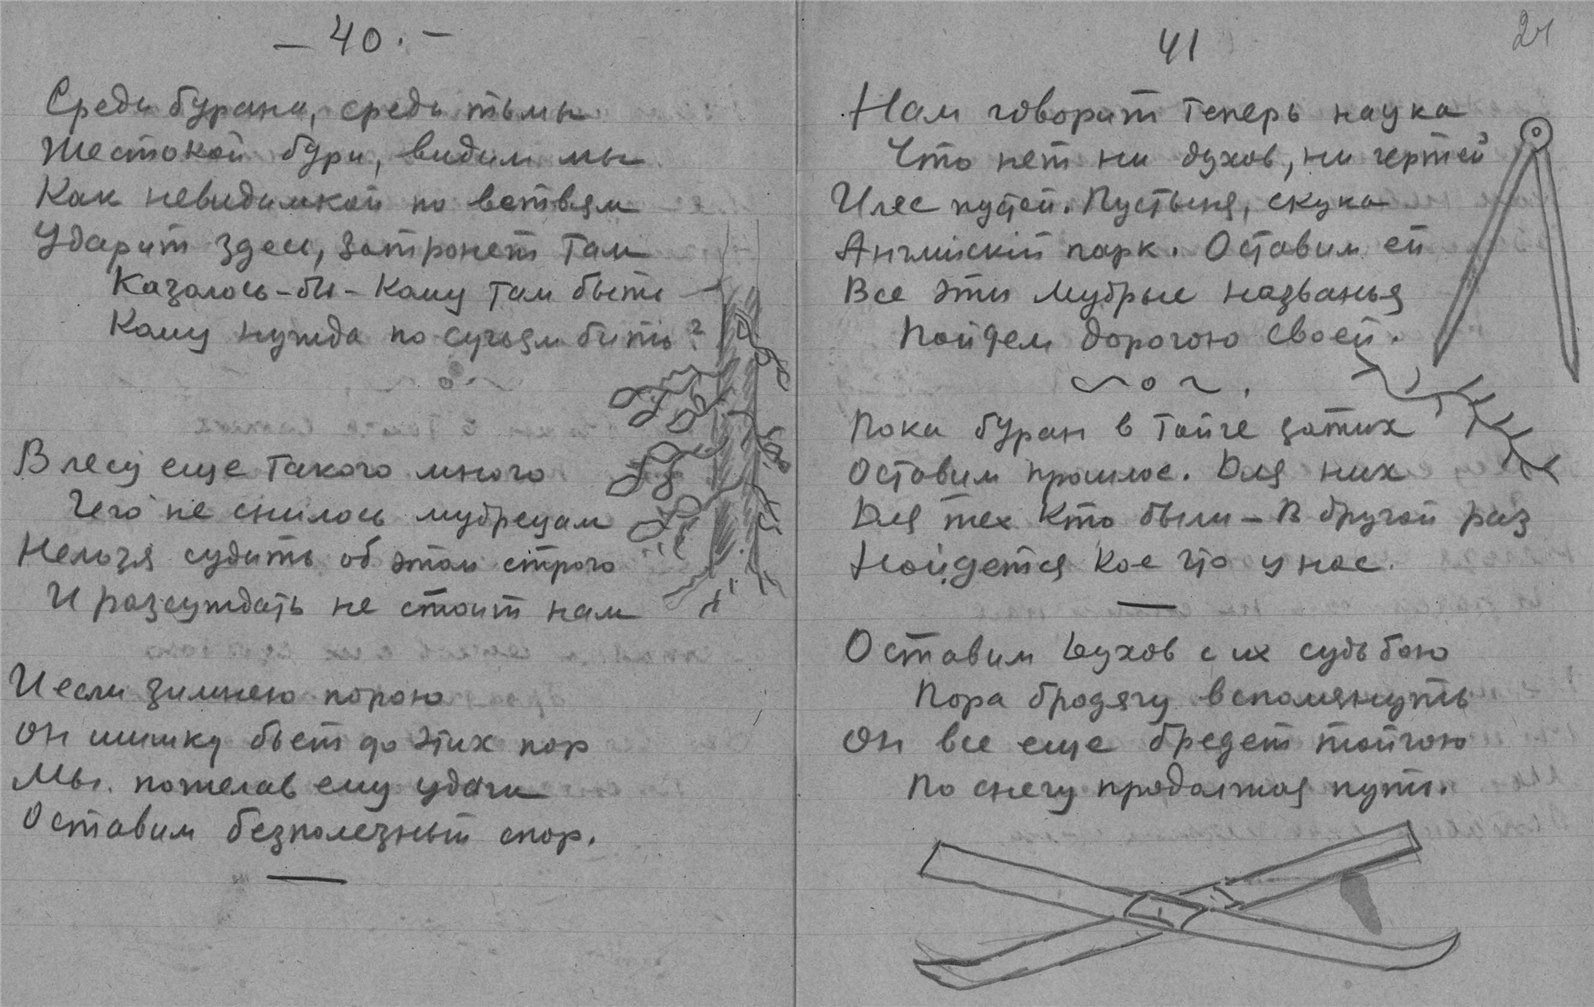 — 40. —
Средь бурана, средь тьмы
Жестокой бури, видим мы
Как невидимкой по ветвям
Ударит здесь, затронет там
Казалось-бы - кому там быть
Кому нужда по сучьям бить?
В лесу еще такого много
Чего не снилось мудрецам
Нельзя судить об этом строго
И разсуждать не стоит нам
И если зимнею порою
Он шишку бьет до этих пор
Мы. пожелав ему удачи
Оставим безполезный спор.
41
21
Нам говорит теперь наука
Что нет ни духов, ни чертей
И лес пустой. Пустыня, скука
Английский парк. Оставим ей
Все эти мудрые названья
Пойдем дорогою своей.
Пока буран в тайге затих
Оставим прошлое. Для них
Для тех кто были - В другой раз
Найдется кое что у нас.
Оставим духов с их судьбою
Пора бродягу вспомянуть
Он все еще бредет тайгою
По снегу продолжая путь.